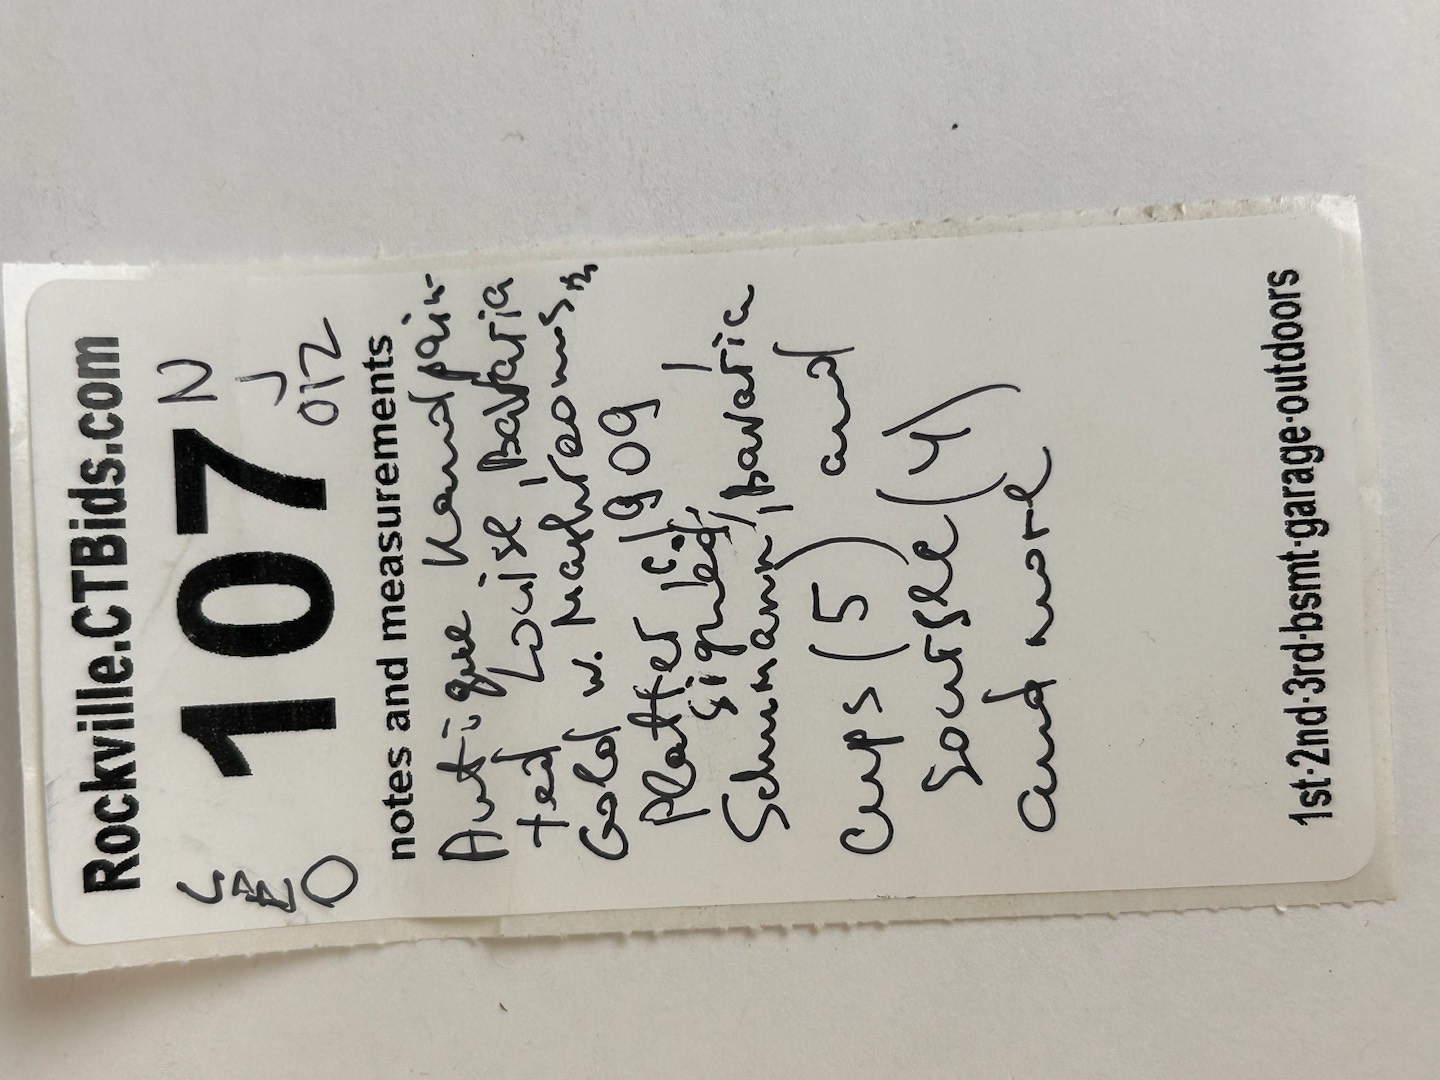 Rockville.CTBids.com
107
N
J
012
notes and measurements
Antique Handpain-
ted Louise, Bavaria
Gold w. Mashreoms,
Platter c. 1909
signed,
Schumann, Bavaria
cups (5) and
Soursee (4)
and more
1st·2nd·3rd·bsmt·garage·outdoors